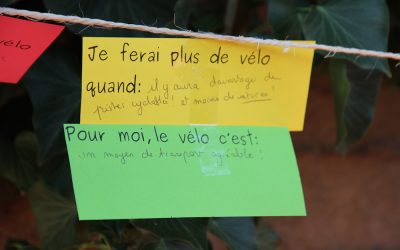 vélo
Je ferai plus de vélo
quand: il y aura davantage de
pistes cyclables! et moins de voitures!
Pour moi, le vélo c'est:
un moyen de transport agréable!